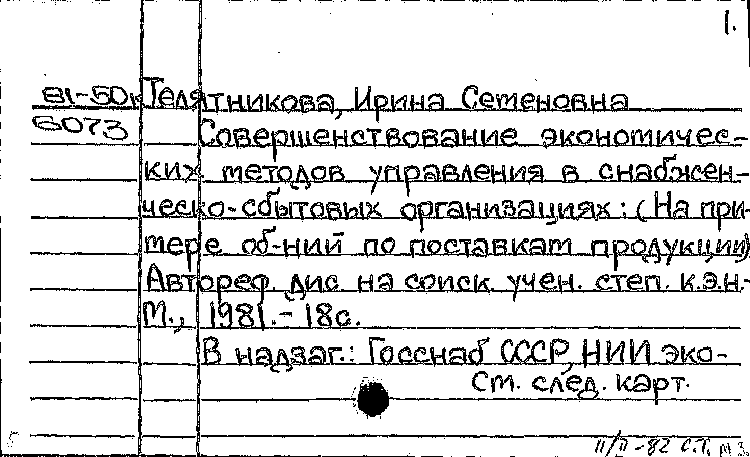 1.
81-50к Телятникова, Ирина Семеновна
6073 Совершенствование экономичес-
ких методов управления в снабжен-
ческо-сбытовых организациях: (На при-
мере об-ний по поставкам продукции)
Автореф. дис. на соиск. учен. степ. к.э.н.-
М., 1981.-18с.
В надзаг.: Госснаб СССР, НИИ эко-
См. след. карт.
11/II-82 С.Т.